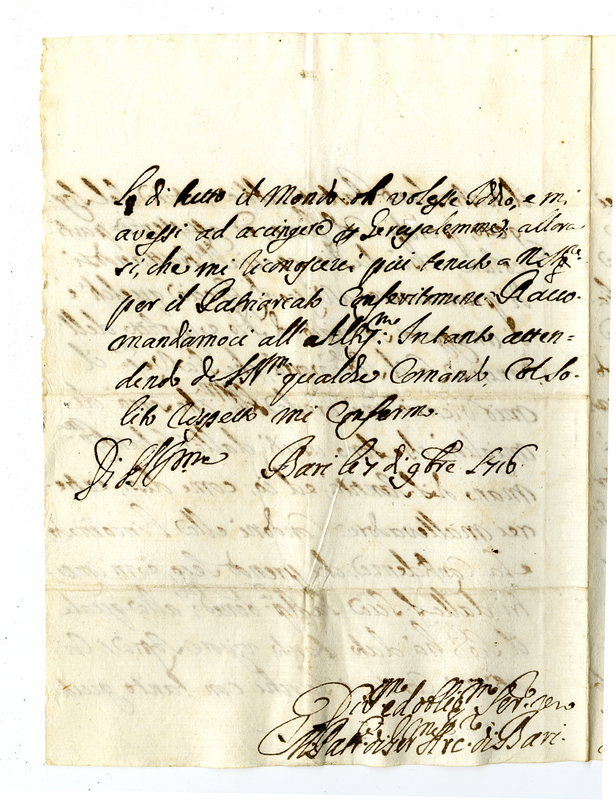 le di tutto il Mondo. oh volesse Iddio, e mi
avessi ad accingere p Gerusalemme, allora
si, che mi riconoscerei più tenuto a
per il Patriarcato Conferitomene. Racco-
mandiamoci all' Altissmo. Intanto atten-
dendo di qualche Comando, Col so-
lito rispetto mi Confermo.
Di Bari li 7 di 9bre 1716.
Divmo ed obligmo Ser.
di Arc. di Bari.